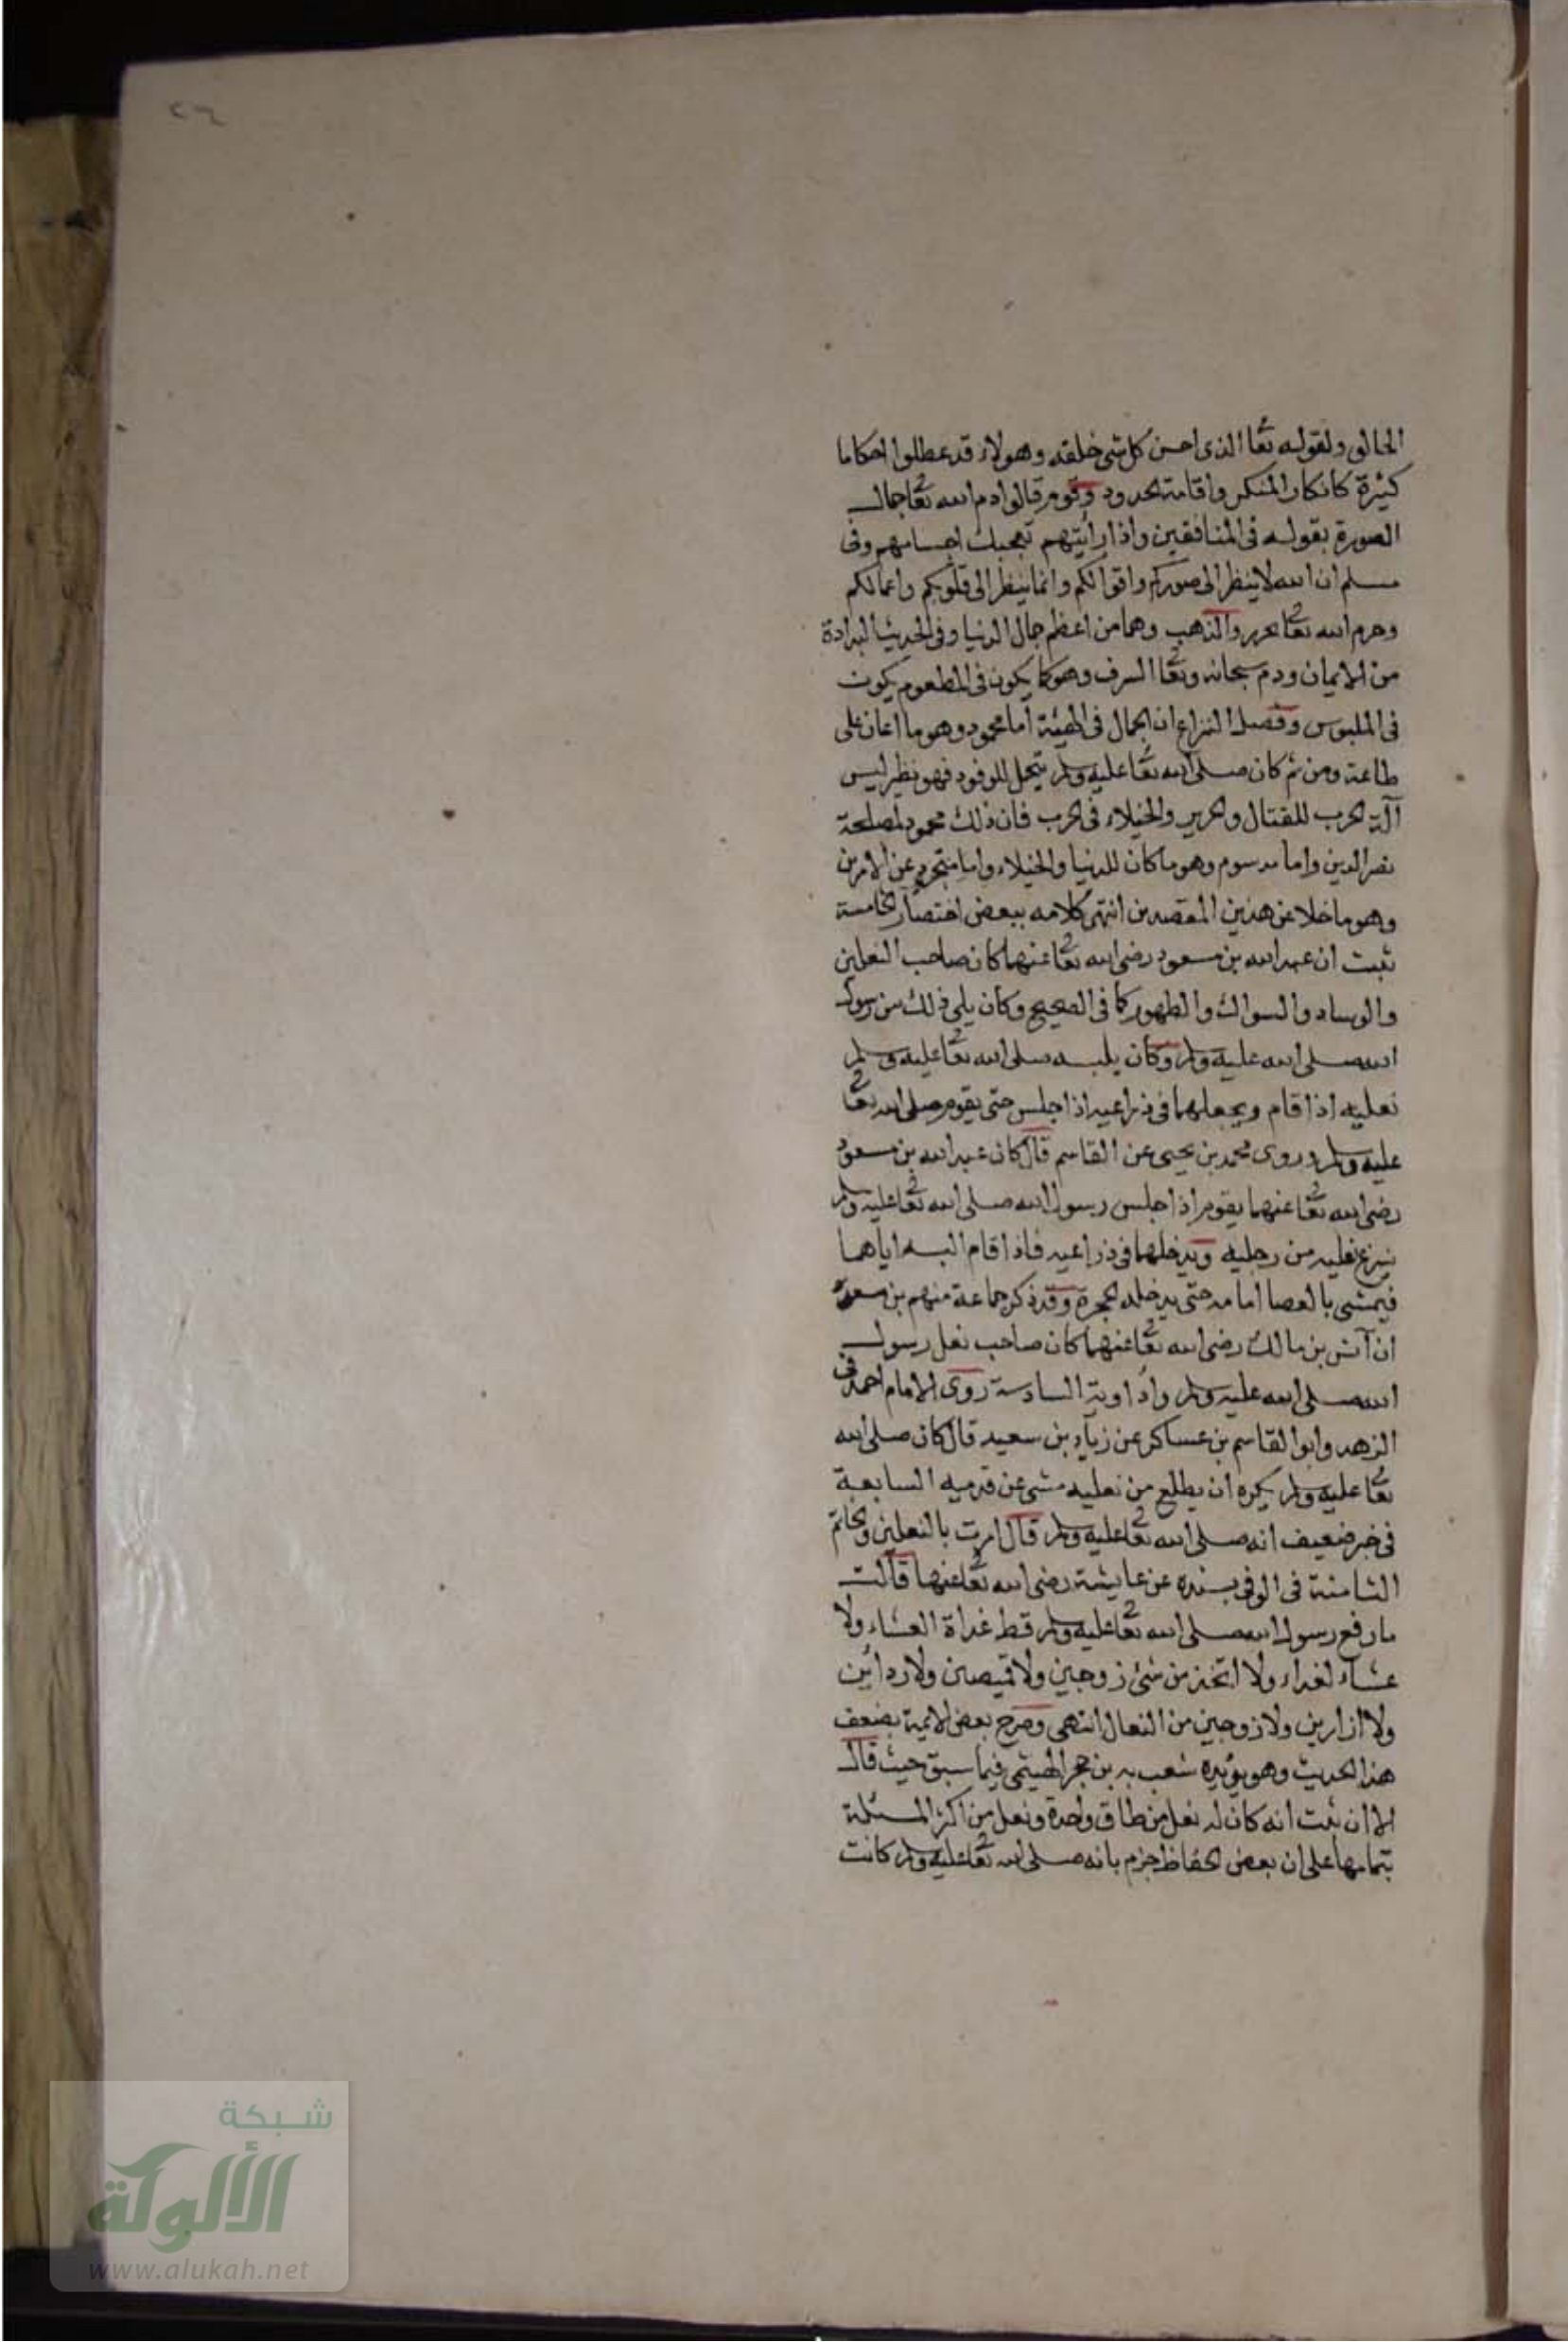 ٢٦
الخالق ولقوله تعا الذى احسن كل شى خلقه وهولاء قد عطلوا احكاما
كثيرة كانكار المنكر واقامة الحدود وقوم قالوا ذم الله تعا جمال
الصورة بقوله فى المنافقين واذا رأيتهم تعجبك اجسامهم وفى
مسلم ان الله لا ينظر الى صوركم واقوالكم وانما ينظر الى قلوبكم واعمالكم
وحرم الله تعا الحرير والذهب وهما من اعظم جمال الدنيا وفى الحديث البدادة
من الايمان وذم سبحانه وتعا السرف وهو كما يكون فى المطعوم يكون
فى الملبوس وفصل النزاع ان الجمال فى الهيئة أما محمود وهو ما اعان على
طاعة ومن ثم كان صلى الله تعا عليه وسلم يتجمل للوفود فهو نظير لبس
آلة الحرب للقتال والحرير والخيلاء فى الحرب فان ذلك محمود لمصلحة
نصر الدين واما مدسوم وهو ما كان للدنيا والخيلاء واما متجرد عن الامرين
وهو ما خلا عن هذين المقصدين انتهى كلامه ببعض اختصار الخامسة
ثبت ان عبد الله بن مسعود رضى الله تعا عنهما كان صاحب النعلين
والوساد والسواك والطهور كما فى الصحيح وكان يلى ذلك من رسول
الله صلى الله عليه وسلم وكان يلبسه صلى الله تعا عليه وسلم
نعليه اذا قام ويجعلهما فى ذراعيه اذا جلس حتى يقوم صلى الله تعا
عليه وسلم وروى محمد بن يحيى عن القاسم قال كان عبد الله بن مسعود
رضى الله تعا عنهما يقوم اذا جلس رسول الله صلى الله تعا عليه وسلم
ينزع نعليه من رجليه ويدخلهما فى ذراعيه فاذا قام البسه اياهما
فيمشى بالعصا امامه حتى يدخله الحجرة وقد ذكر جماعة منهم بن سعد
ان آنس بن مالك رضى الله تعا عنهما كان صاحب نعل رسول
الله صلى الله عليه وسلم واداوية السادسة روى الامام احمد فى
الزهد وابو القاسم بن عساكر عن زياد بن سعيد قال كان صلى الله
تعا عليه وسلم يكره ان يطلع من نعليه مشى عن قدميه السابعة
فى خبر ضعيف انه صلى الله تعا عليه وسلم قال امرت بالنعلين والخاتم
الثامنة فى الوفى بسنده عن عايشة رضى الله تعا عنها قالت
ما رفع رسول الله صلى الله تعا عليه وسلم قط غداة العشاء ولا
عشاء لغداء ولا اتخذ من شئ زوجين ولا قميصين ولا ردائين
ولا ازارين ولا زوجين من النعال انتهى وصرح بعض الايمة بضعف
هذا الحديث وهو يؤيده بن حجر الهيتمى فيما سبق حيث قال
الا ان ثبت انه كان له نعل من طاق واحدة ونعل من اكثر المسئلة
بتمامها على ان بعض الحفاظ جزم بانه صلى الله تعا عليه وسلم كانت
شبكة
الألوكة
www.alukah.net